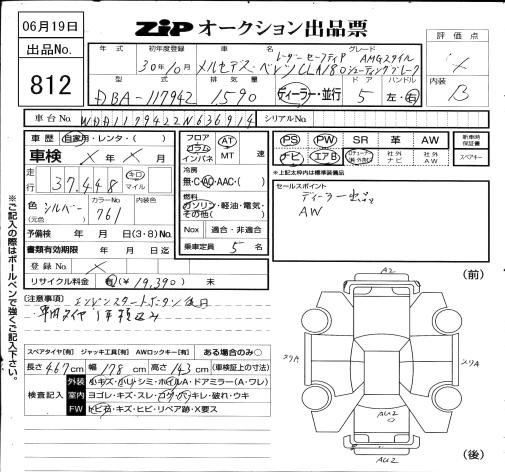 06月19日
ZIP オークション出品票
出品No.
812
評価点
内装
B
年式
初年度登録
車名
グレード
30年10月
メルセデス・ベンツ CLA180 シューティングブレーク
レーダーセーフティP AMGスタイル
型式
排気量
ドア
ハンドル
DBA-117942
1,590
ディーラー・並行
5
左・右
車台No.
WDD1179422N636914
シリアルNo.
車歴
自家用・レンタ・( )
車検 × 年 × 月
走行
37,448
キロ
マイル
色(元色)
シルバー
カラーNo.
761
内装色
予備検 年 月 日(3・8)No.
書類有効期限 年 月 日迄
登録No. ×
リサイクル料金 有(¥19,390) 未
フロア
コラム
インパネ
AT
MT 速
冷房
無・C・AC・AAC・( )
燃料
ガソリン・軽油・電気・
その他( )
Nox 適合・非適合
乗車定員 5 名
PS PW SR 革 AW
ナビ エアB
社外ナビ
社外AW
新車時保証書
スペアキー
*上記太枠内は標準装備品
セールスポイント
ディーラー出品
AW
※ご記入の際はボールペンで強くご記入下さい。
(注意事項)
エンジンスタートボタン
スペアタイヤ[有] ジャッキ工具[有] AWロックキー[有] ある場合のみ○
長さ 467 cm 幅 178 cm 高さ 143 cm (車検証上の寸法)
検査記入
外装 小キズ・小ハリ・シミ・ホイルA・ドアミラー(A・ワレ)
室内 ヨゴレ・キズ・スレ・コゲ・穴・キレ・破れ・ウキ
FW トビ石・キズ・ヒビ・リペア跡・X要ス
(前)
A2
スリA
スリA
AU2
AU2
(後)